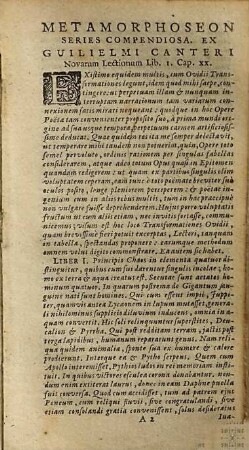 METAMORPHOSEON
SERIES COMPENDIOSA. EX
GUILIELMI CANTERI
Novarum Lectionum Lib. 1. Cap. xx.
EXistimo equidem multis, cum Ovidii Trans-
formationes legunt, idem quod mihi sæpe, con-
tingere: ut perpetuam illam & nunquam in-
terruptam narrationum tam variarum con-
nexionem satis mirari nequeant:
Poëta tam convenienter proposito suo, à prima mundi origine
ad suaque tempora, perpetuum carmen
deducat. Quæ quidem res ita me semper delectavit,
ut temperare mihi tandem non potuerim, quin, Opere toto
semel pervoluto, ordinis rationem per singulas fabellas
considerarem, atque adeo totum Opus quasi in Epitomen
quandam redigerem: ut quam ex partibus singulis olim
voluptatem
oculos posito, longe pleniorem perciperem: & poëtæ in-
genium cum in aliis rebus multis, tum in hac præcipuè
non vulgare suspicere. Hujus vero voluptatis
fructum ut cum aliis etiam, nec invitis fortasse, com-
municemus; visum est hoc loco Transformationes Ovidii,
quam brevissimè fieri potuit excerptas, Lectori, tanquam
in tabella, spectandas proponere: earumque methodum
omnem velut digito commonstrare. Ea autem sic habet.
LIBER I. Principio Chaos in elementa quatuor di-
stinguitur, quibus cum sua datur singulis incolæ; ho-
mo ex terra & aqua creatus est. Secutæ sunt ætates ho-
minum quatuor. In quarum postrema de Gigantum sangui-
ne nati sunt homines. Qui cum essent impii, Juppi-
ter, quum vel antea Lycaonem in lupum mutasset, genera-
li nihilominus supplicio diluvium inducens, omnia in a-
quam convertit. Hic soli relinquuntur superstites, Deu-
calion & Pyrrha. Qui post redditam terram, jactis post
terga lapidibus, humanum reparant genus. Nam reli-
qua quidem animalia, sponte sua ex humore & calore
prodierunt. Interque ea & Pytho serpens. Quem cum
Apollo interemisset, Pythios ludos in rei memoriam institu-
it. In quibus victores esculea corona donabantur. Non-
dum enim exstiterat laurus, donec in eam Daphne puella
fuit conversa. Quod cum accidisset, tum ad patrem ejus
Peneum, cum reliqui fluvii, sive congratulandi, sive
etiam consolandi gratia convenissent, solus desideratus
A 2